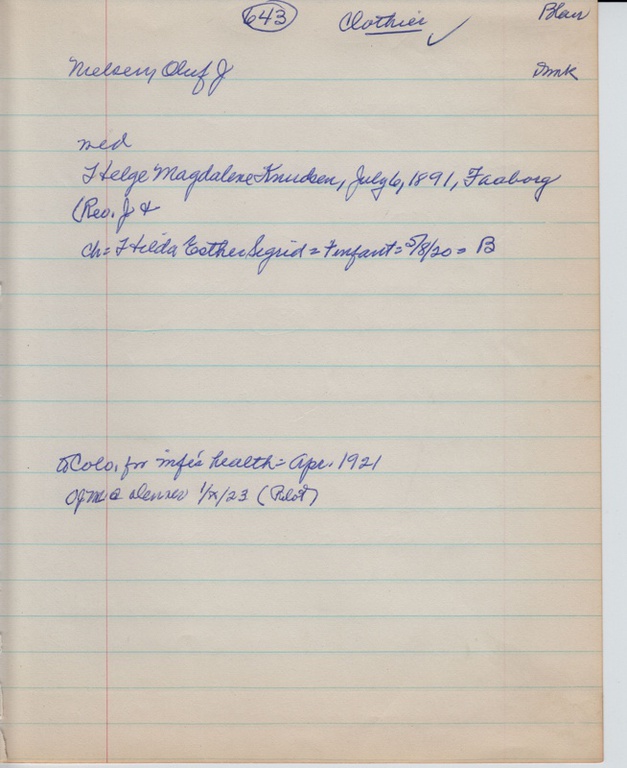 643 Clothier ✓ Blair
Nielsen, Oluf J Dmk
med
Helge Magdalene Knudsen, July 6, 1891, Faaborg
(Rev. J &
ch = Hilda Esther Sigrid = infant = 5/8/20 = B
to Colo. for wife's health = Apr. 1921
Denver 1/x/23 (Pilot)